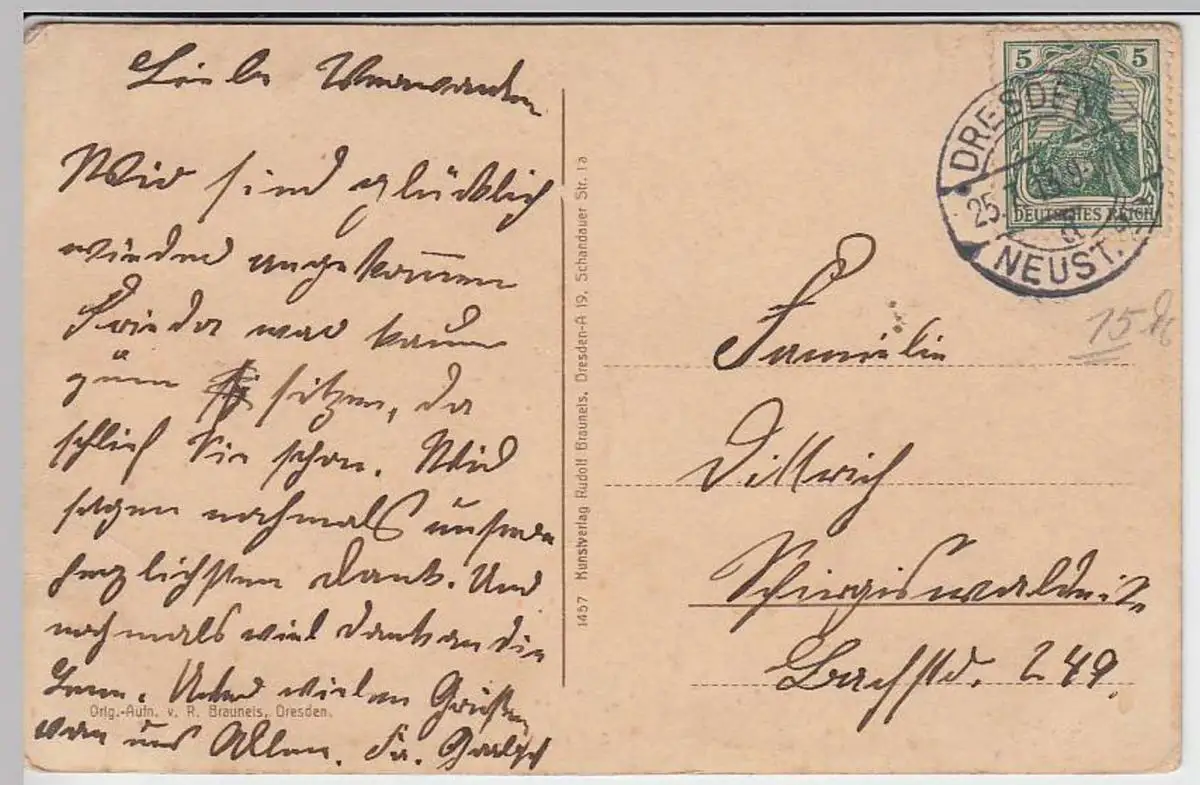 Liebe Verwanden
Wir sind glücklich
wieder angekom̅en
Frieda war kaum
zum sitzen, da
schlief Sie schon. Wir
sagen nochmals unsern
herzlichsten Dank. Und
nochmals viel Dank an die
Unter vielen Grüßen
von uns Allen. Fa.
Orig.-Aufn. v. R. Brauneis, Dresden.
1457 Kunstverlag Rudolf Brauneis, Dresden-A 19, Schandauer Str. 1a
5 5
DEUTSCHES REICH
DRESDEN
25.
NEUST.
15
Familie
Dittrich
Schirgiswalde
Bachstr. 249.